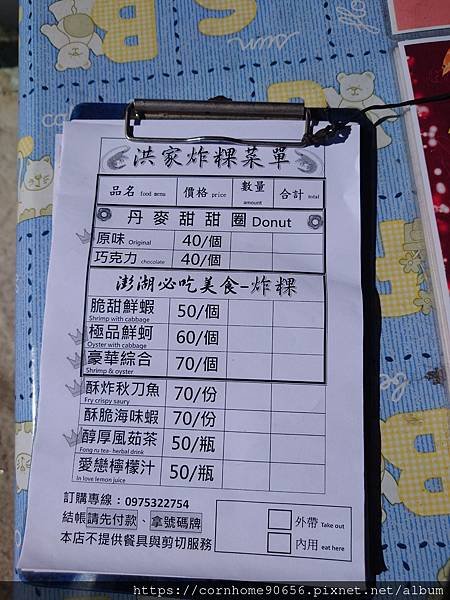 洪家炸粿菜單
品名 food menu 價格 price 數量 amount 合計 total
丹麥甜甜圈 Donut
原味 Original 40/個
巧克力 chocolate 40/個
澎湖必吃美食-炸粿
脆甜鮮蝦 50/個
Shrimp with cabbage
極品鮮蚵 60/個
Oyster with cabbage
豪華綜合 70/個
Shrimp & oyster
酥炸秋刀魚 70/份
Fry crispy saury
酥脆海味蝦 70/份
醇厚風茹茶 50/瓶
Fong ru tea- herbal drink
愛戀檸檬汁 50/瓶
In love lemon juice
訂購專線：0975322754
結帳請先付款、拿號碼牌
本店不提供餐具與剪切服務
外帶 Take out
內用 eat here
https://cornhome90656.pixnet.net/album